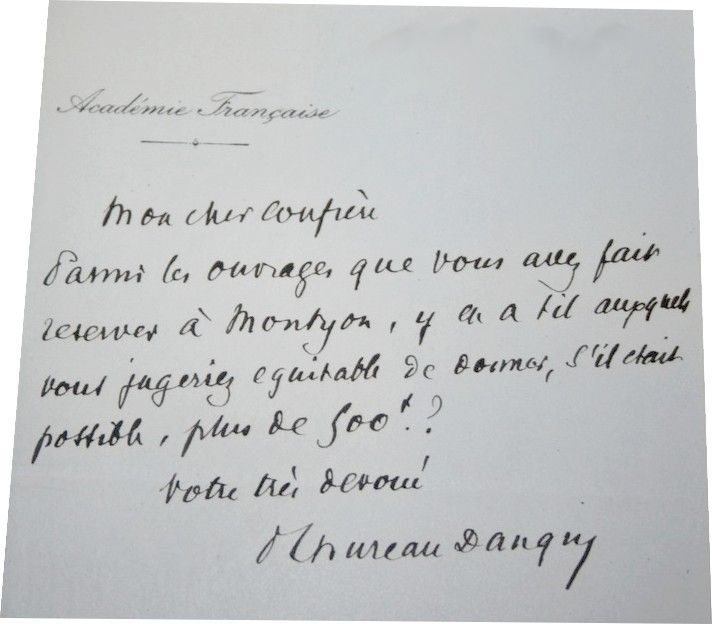 Académie Française
Mon cher Confrère
Parmi les ouvrages que vous avez fait
reserver à Montyon, y en a t il auxquels
vous jugeriez equitable de donner, s'il etait
possible, plus de 500f.?
Votre très devoué
P Thureau Dangin